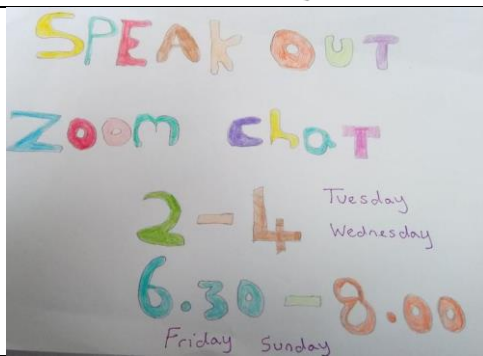 SPEAK OUT
ZOOM ChaT
2-4 Tuesday
Wednesday
6.30-8.00
Friday Sunday